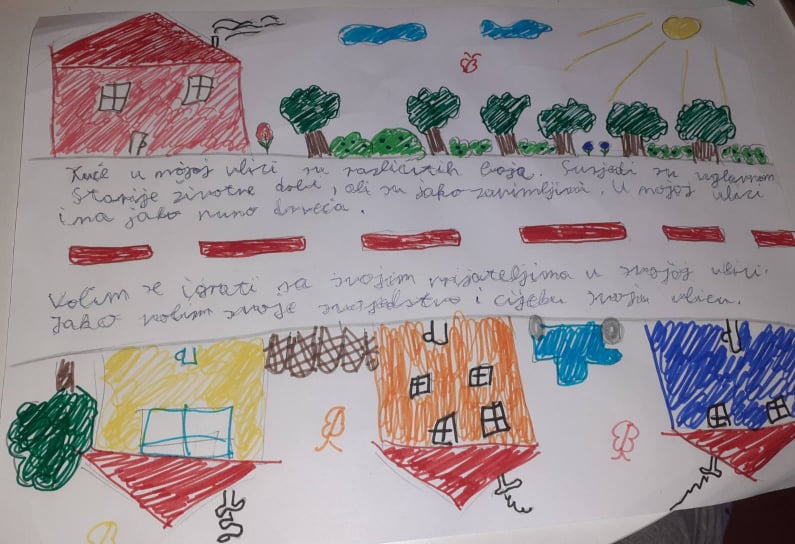 Kuće u mojoj ulici su različitih boja. Susjedi su uglavnom
starije životne dobi, ali su jako zanimljivi. U mojoj ulici
ima jako puno drveća.
Volim se igrati sa svojim prijateljima u svojoj ulici.
Jako volim svoje susjedstvo i cijelu svoju ulicu.